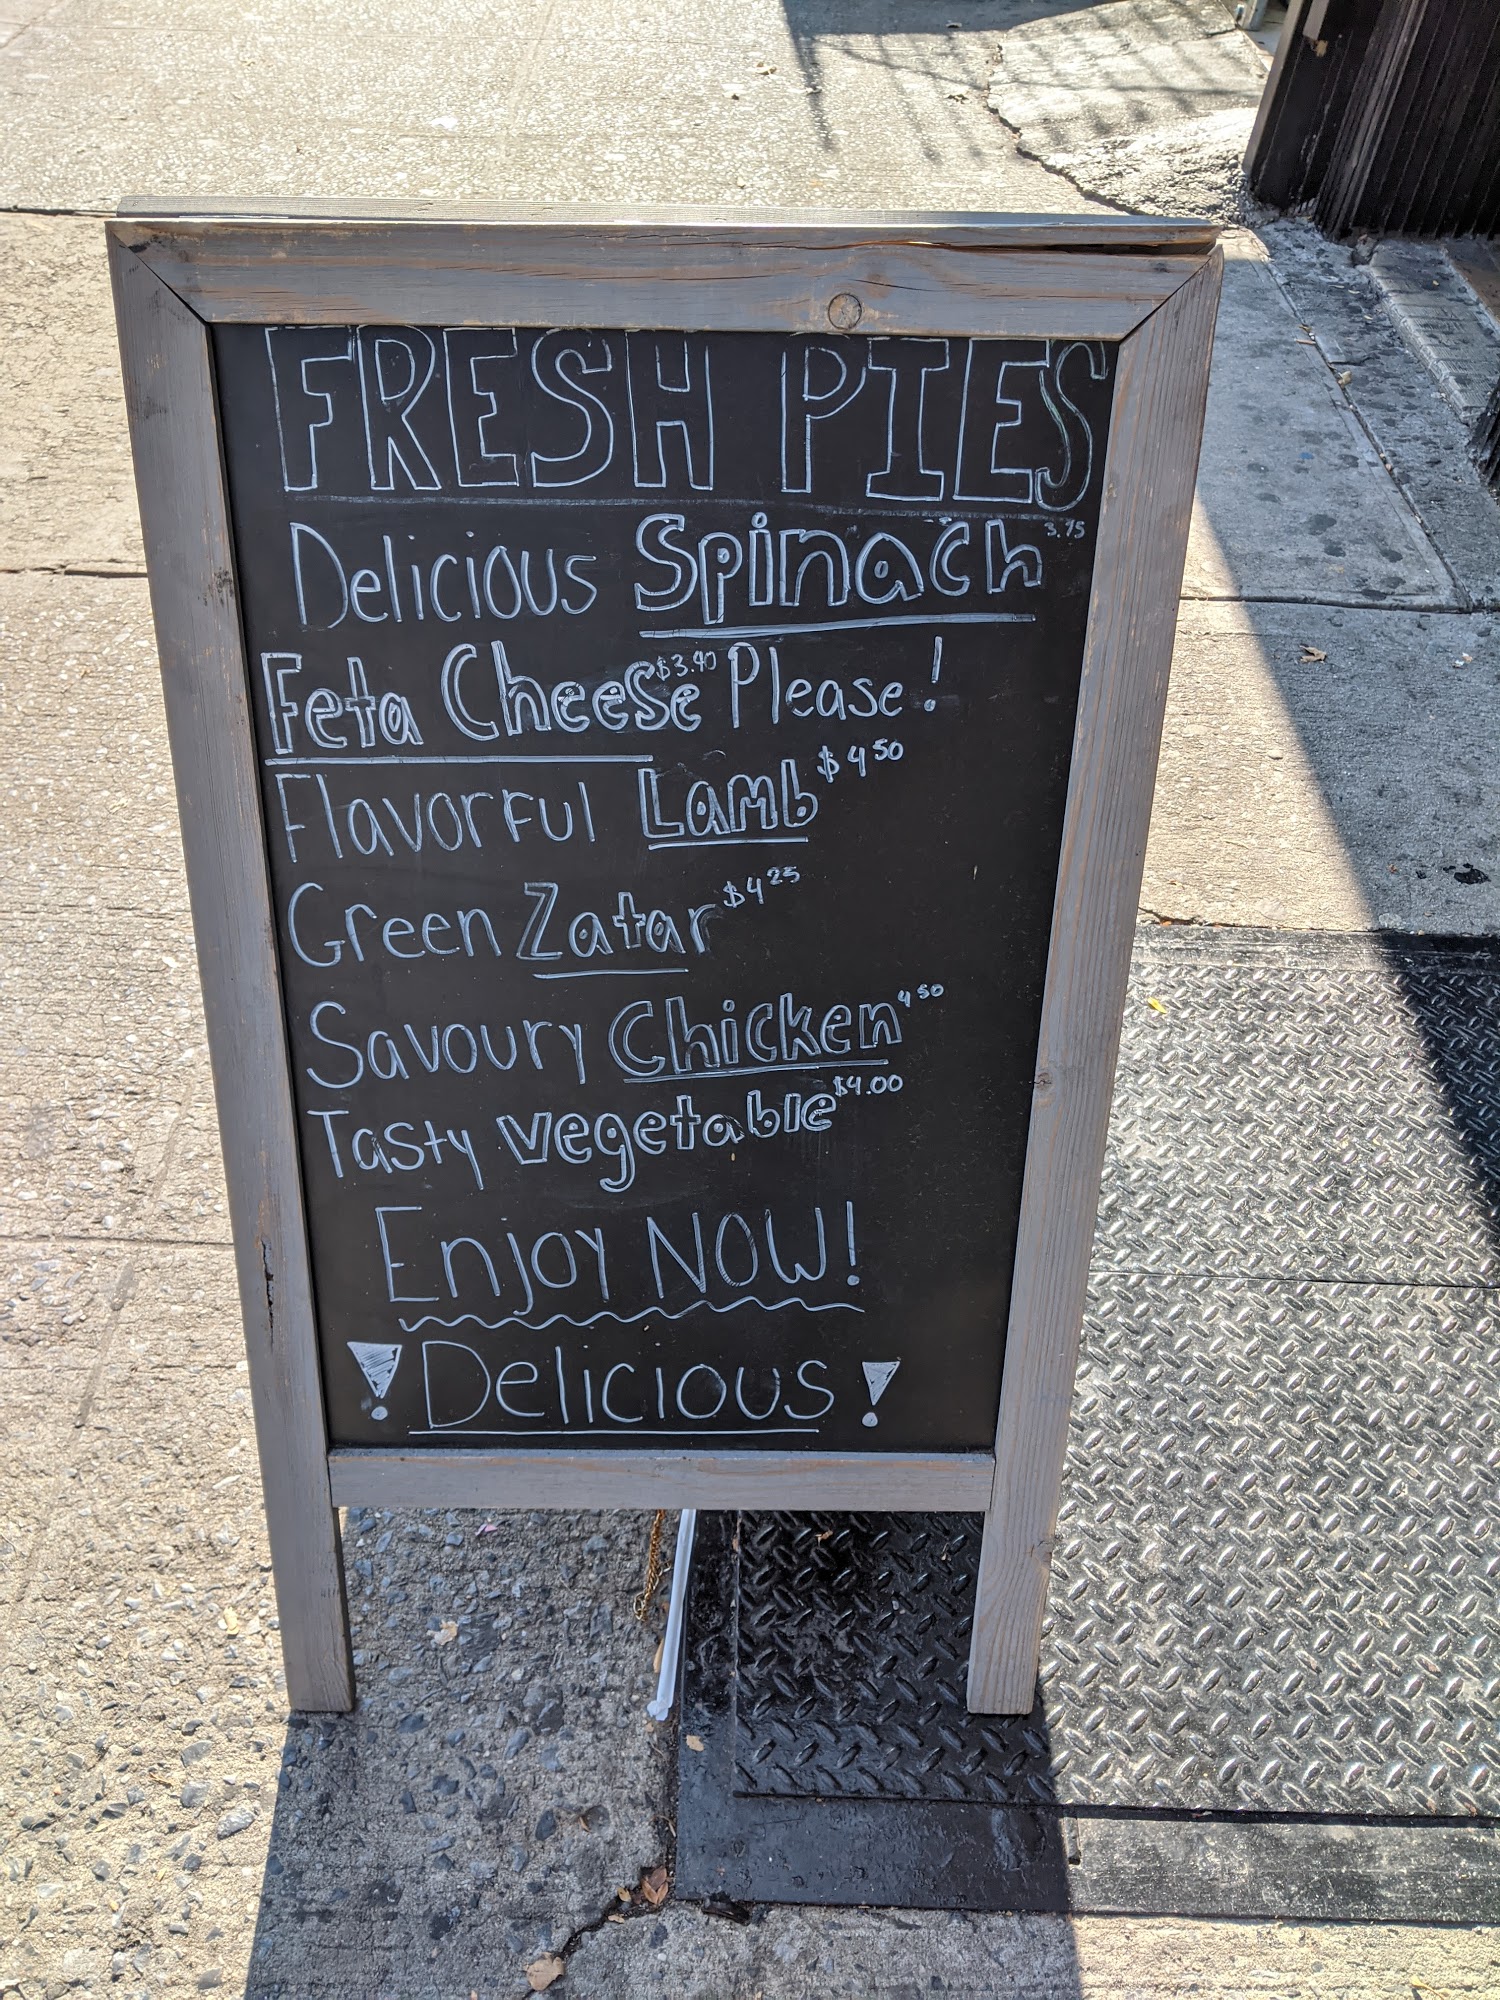 FRESH PIES
Delicious Spinach 3.75
Feta Cheese $3.40 Please!
Flavorful Lamb $4 50
Green Zatar $4 25
Savoury Chicken 4 50
Tasty vegetable $4.00
Enjoy NOW!
! Delicious !